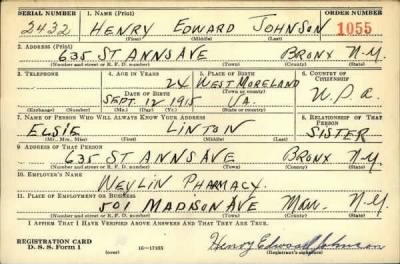 SERIAL NUMBER 1. NAME (Print) ORDER NUMBER
2432 HENRY EDWARD JOHNSON 1055
(First) (Middle) (Last)
2. ADDRESS (Print)
635 ST ANNS AVE BRONX N.Y.
(Number and street or R. F. D. number) (Town) (County) (State)
3. TELEPHONE 4. AGE IN YEARS 5. PLACE OF BIRTH 6. COUNTRY OF CITIZENSHIP
24 WEST MORELAND
DATE OF BIRTH (Town or county)
SEPT. 12 1915 VA.
(Exchange) (Number) (Mo.) (Day) (Yr.) (State or country)
7. NAME OF PERSON WHO WILL ALWAYS KNOW YOUR ADDRESS 8. RELATIONSHIP OF THAT PERSON
ELSIE LINTON SISTER
(Mr., Mrs., Miss) (First) (Middle) (Last)
9. ADDRESS OF THAT PERSON
635 ST ANNS AVE BRONX N.Y.
(Number and street or R. F. D. number) (Town) (County) (State)
10. EMPLOYER'S NAME
NEVLIN PHARMACY.
11. PLACE OF EMPLOYMENT OR BUSINESS
501 MADISON AVE MAN. N.Y.
(Number and street or R. F. D. number) (Town) (County) (State)
I AFFIRM THAT I HAVE VERIFIED ABOVE ANSWERS AND THAT THEY ARE TRUE.
REGISTRATION CARD
D. S. S. Form 1 (over) 16—17105 Henry Edward Johnson
(Registrant's signature)